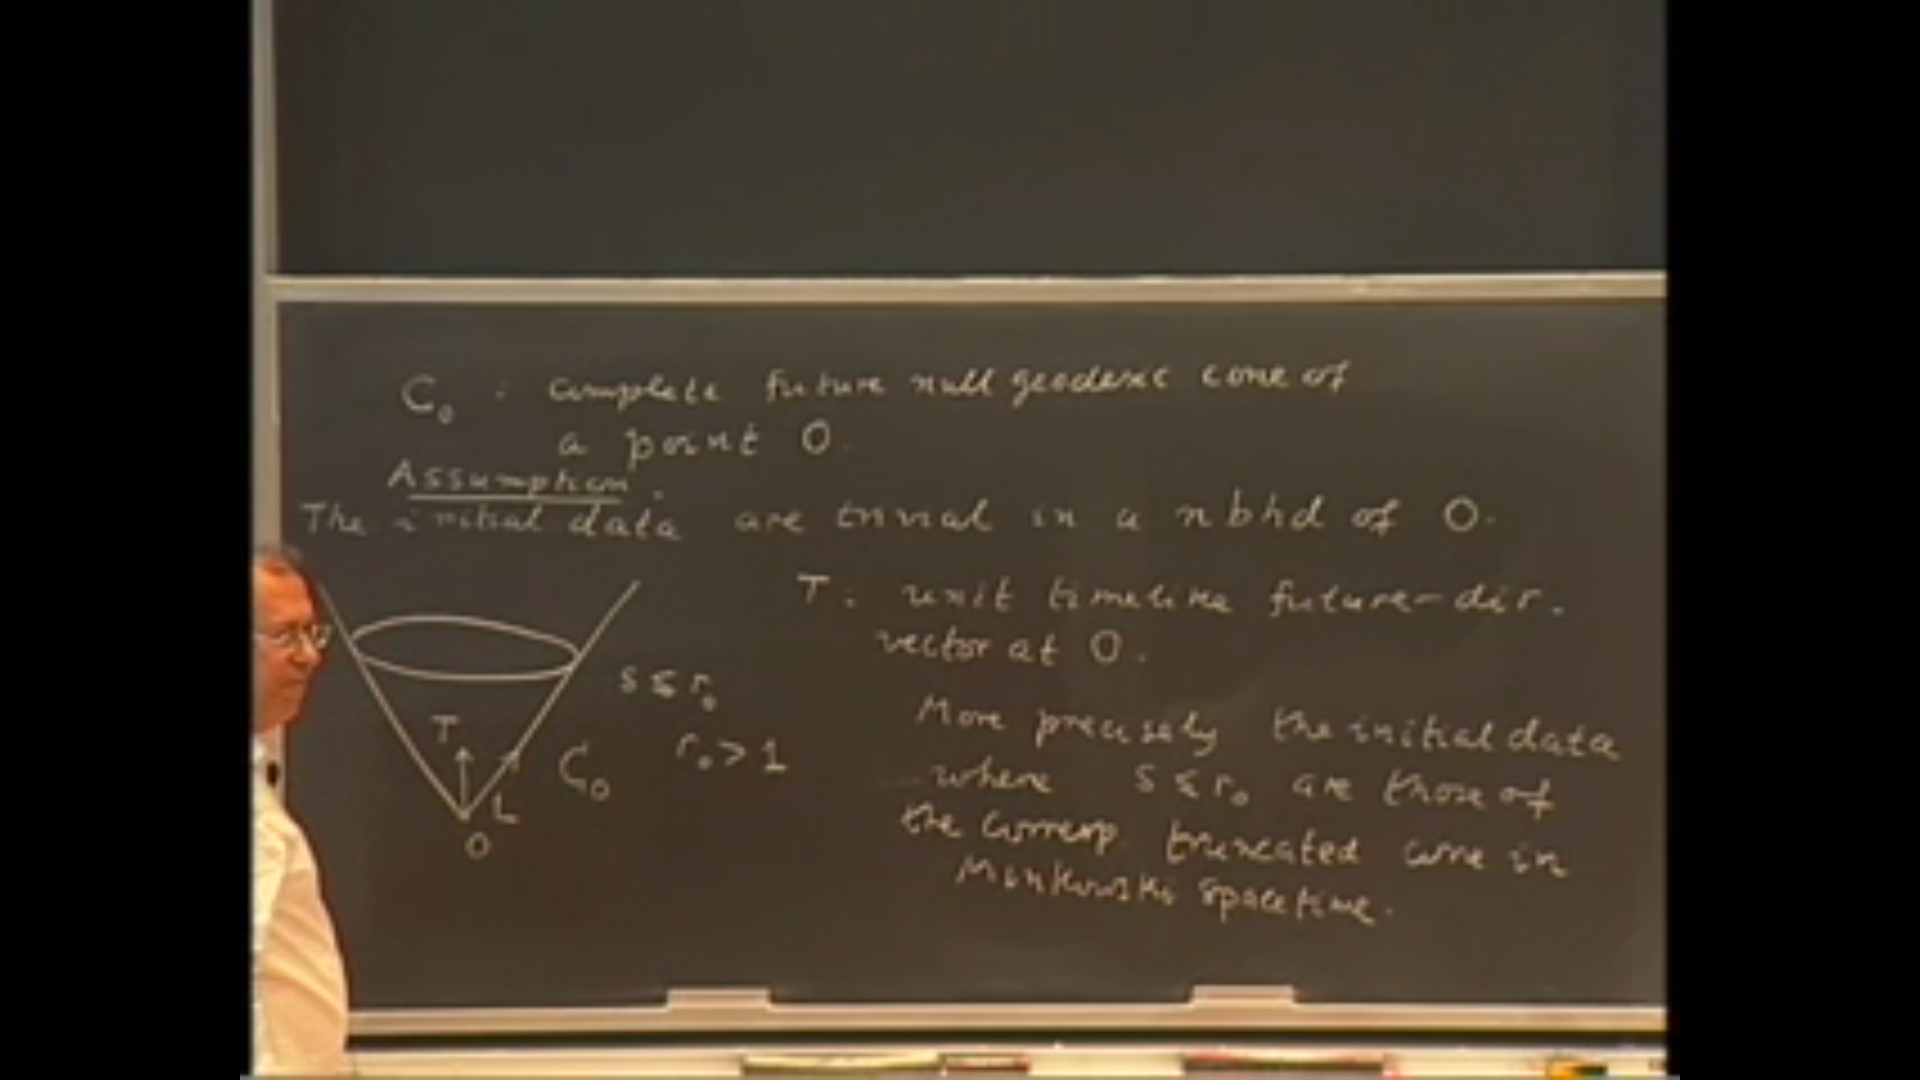 C₀ : complete future null geodesic cone of
a point O.
Assumption :
The initial data are trivial in a nbhd of O.
T : unit timelike future-dir.
vector at O.
s ≤ r₀
r₀ > 1
T
L
C₀
O
More precisely the initial data
where s ≤ r₀ are those of
the corresp. truncated cone in
Minkowski spacetime.